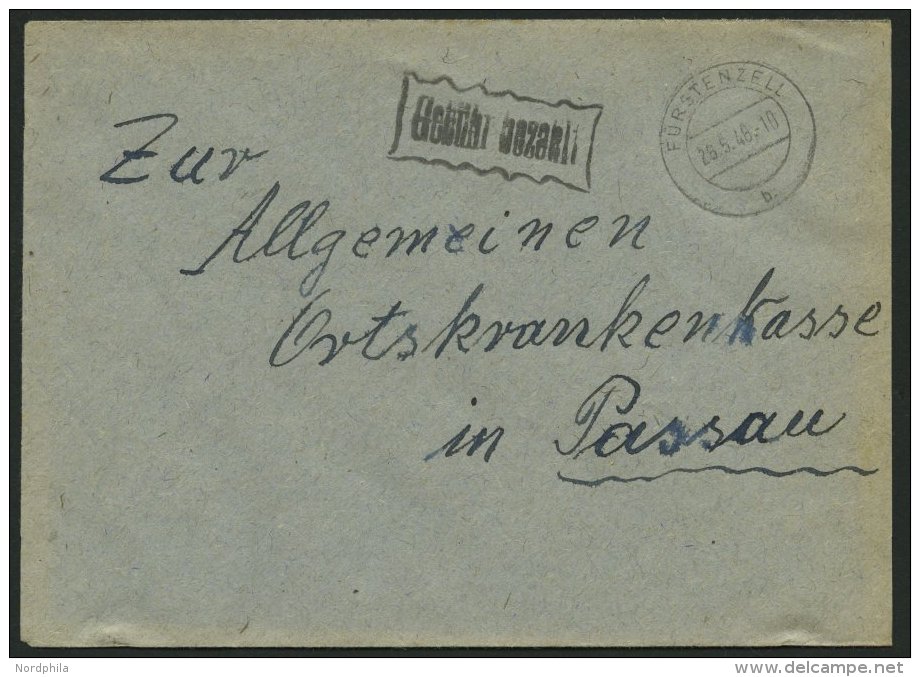 Gebühr bezahlt
FÜRSTENZELL
26.5.46.-10
b
Zur
Allgemeinen
Ortskrankenkasse
in Passau
Nordphila
delcampe.net